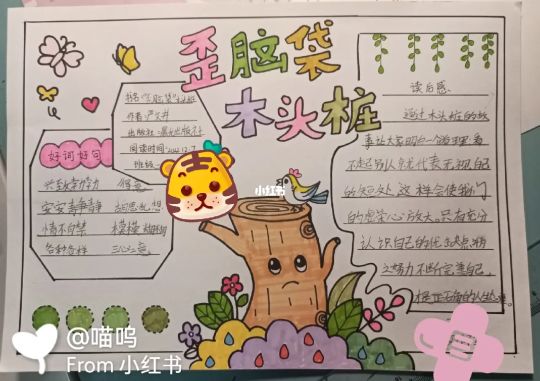 歪脑袋
木头桩
书名:"歪脑袋"木头桩
作者:严文井
出版社:
阅读时间:2022.12.7
班级:
好词好句
安安静静 胡思乱想
情不自禁 模模糊糊
各种各样 三心二意
读后感
通过木头桩的故
事让大家明白一个道理:看
不起别人就代表无视自己
的短处,这样会使我们
的虚荣心放大,只有充分
认识自己的优缺点,
努力不断完善自己,
才是正确的人生态度。
小红书
@喵呜
From 小红书